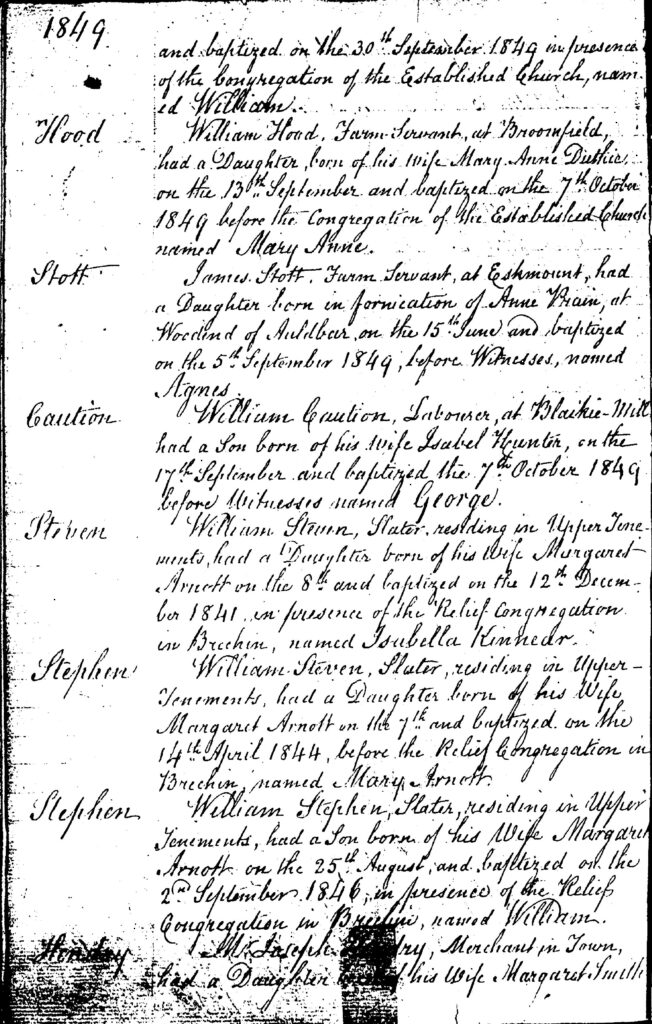 1849
and baptized on the 30th September 1849 in presence
of the Congregation of the Established Church, nam-
ed William.
Hood
William Hood, Farm Servant, at Broomfield,
had a Daughter, born of his wife Mary Anne Duthie,
on the 13th September and baptized on the 7th October
1849 before the Congregation of the Established Church
named Mary Anne.
Stott
James Stott, Farm Servant, at Eskmount, had
a Daughter born in fornication of Anne Brain, at
Woodend of Auldbar, on the 15th June and baptized
on the 5th September 1849, before Witnesses, named
Agnes.
Caution
William Caution, Labourer, at Blaikie-Mill
had a Son born of his wife Isabel Hunter, on the
17th September and baptized the 7th October 1849
before Witnesses named George.
Steven
William Steven, Slater, residing in Upper Tene-
ments, had a Daughter born of his Wife Margaret
Arnott on the 8th and baptized on the 12th Decem-
ber 1841 in presence of the Relief Congregation
in Brechin, named Isabella Kinnear.
Stephen
William Steven, Slater, residing in Upper-
Tenements, had a Daughter born of his Wife
Margaret Arnott on the 7th and baptized on the
14th April 1844, before the Relief Congregation in
Brechin, named Mary Arnott.
Stephen
William Stephen, Slater, residing in Upper
Tenements, had a Son born of his Wife Margaret
Arnott on the 25th August, and baptized on the
2nd September 1846, in presence of the Relief
Congregation in Brechin, named William.
Hendry
Mr Joseph Hendry, Merchant in Town,
had a Daughter born of his Wife Margaret Smith